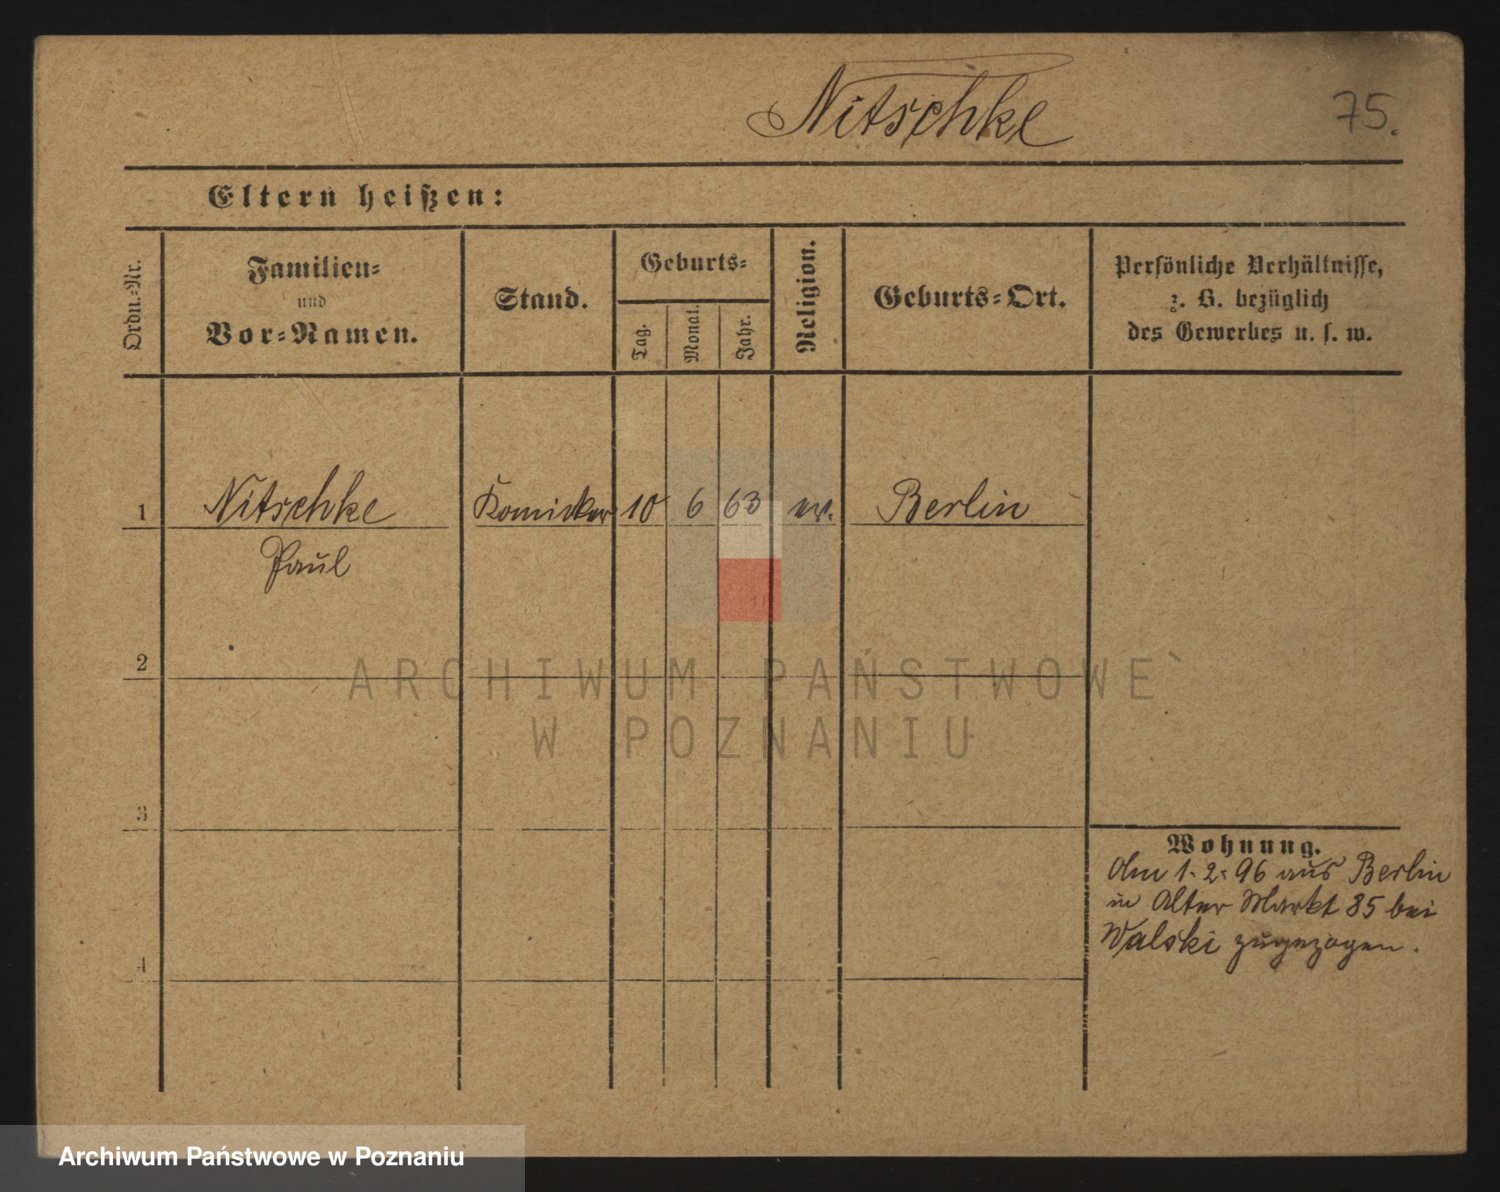 Nitschke
75.
Eltern heißen:
Ordn.-Nr.
Familien-
und
Vor-Namen.
Stand.
Geburts-
Tag.
Monat.
Jahr.
Religion.
Geburts-Ort.
Persönliche Verhältnisse,
z. B. bezüglich
des Gewerbes u. s. w.
1 Nitschke Komicker 10 6 63 ev. Berlin
Paul
2
3
4
Wohnung.
Am 1.2.96 aus Berlin
in Alter Markt 85 bei
Walski zugezogen.
ARCHIWUM PAŃSTWOWE
W POZNANIU
Archiwum Państwowe w Poznaniu